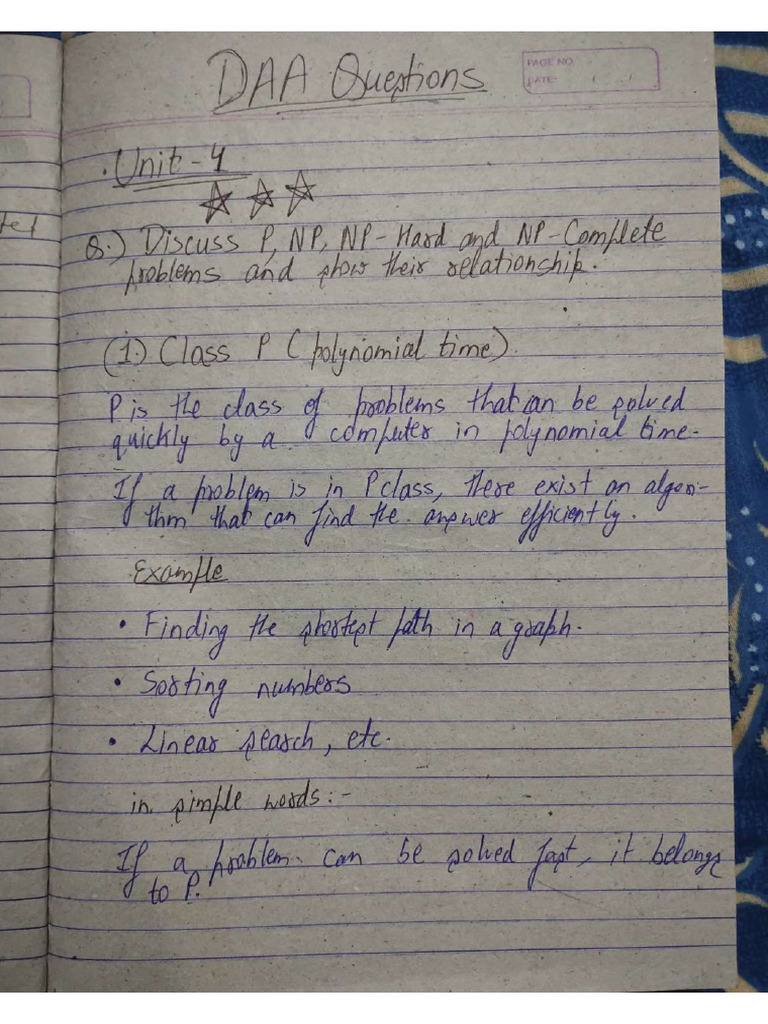 DAA Questions
PAGE NO.
DATE:
Unit-4
Q.) Discuss P, NP, NP-Hard and NP-Complete
problems and show their relationship.
(1.) Class P (polynomial time)
P is the class of problems that can be solved
quickly by a computer in polynomial time.
If a problem is in P class, there exist an algori-
thm that can find the answer efficiently.
Example
• Finding the shortest path in a graph.
• Sorting numbers
• Linear search, etc.
in simple words:-
If a problem can be solved fast, it belongs
to P.